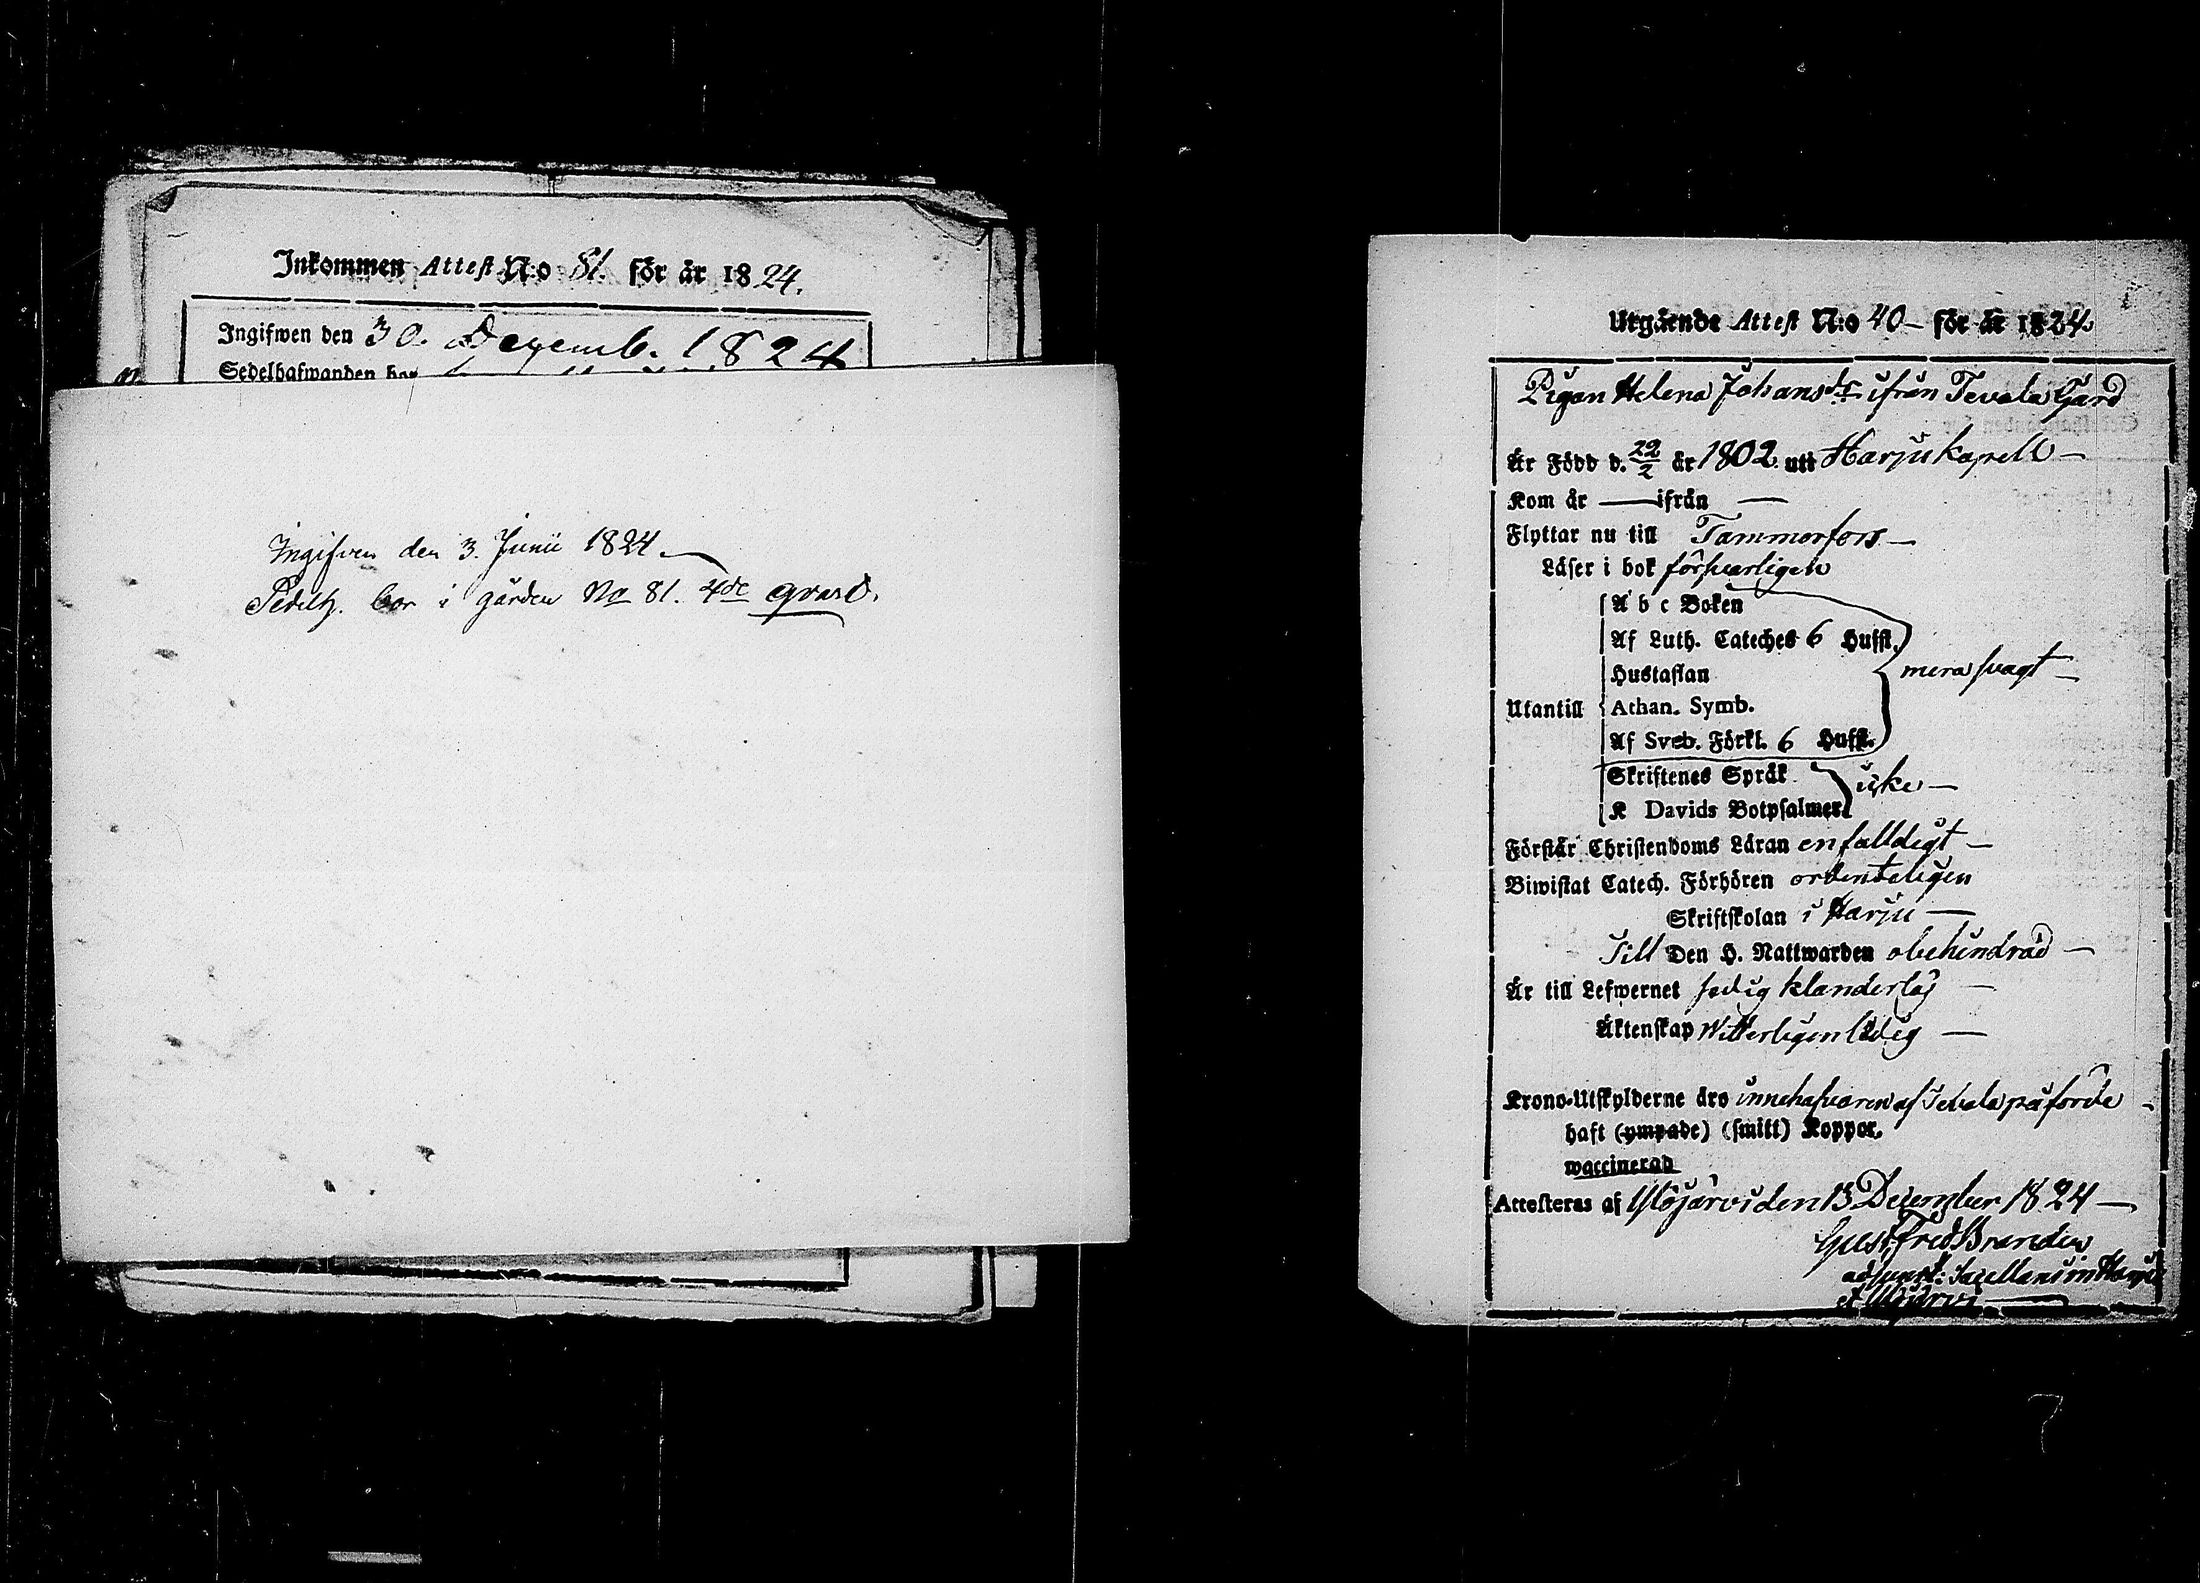 Inkommen Attest N:o 81. för år 1824.
Ingifwen den 30. Decemb. 1824
Sedelhafwanden bor
Ingifven den 3. Junii 1824.
Sedelh. bor i gården No 81. 4de qvart.
Utgående Attest N:o 40 för år 1824.
Pigan Helena Johansdr ifrån Tevala Gård
Är Född d. 22/2 år 1802 uti Harju kapell
Kom år — ifrån —
Flyttar nu till Tammerfors
Läser i bok försvarligen
A b c Boken
Af Luth. Cateches 6 Huffst.
Hustaflan
mera svagt
Utantill Athan. Symb.
Af Sveb. Förkl. 6 Huffst.
Skriftenes Språk
icke
K Davids Botpsalmer
Förstår Christendoms Läran enfalldigt
Biwistat Catech. Förhören ordenteligen
Skriftskolan i Harju
Till Den H. Nattwarden obehindrad
Är till Lefwernet sedig klanderlös
Äktenskap Witterligen ledig
Krono-Utskylderne äro innehafvaren af Tevala påförde
haft (ympade) (smitt) Koppor.
waccinerad
Attesteras af Ylöjärvi den 13 December 1824
Gust. Fred. Brander
adjunct: Sacellani in Harju
& Ylöjärvi